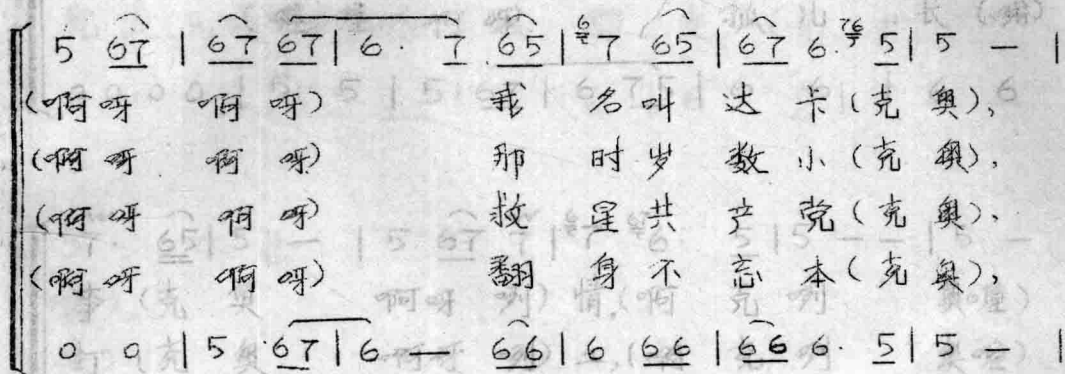 5 67 | 67 67 | 6· 7 65 | 67 65 | 67 6· 765 | 5 — |
(啊呀 啊呀) 我名叫达卡(克奥),
(啊呀 啊呀) 那时岁数小(克奥),
(啊呀 啊呀) 救星共产党(克奥),
(啊呀 啊呀) 翻身不忘本(克奥),
0 0 | 5 67 | 6 — 66 | 6 66 | 66 6· 5 | 5 — |